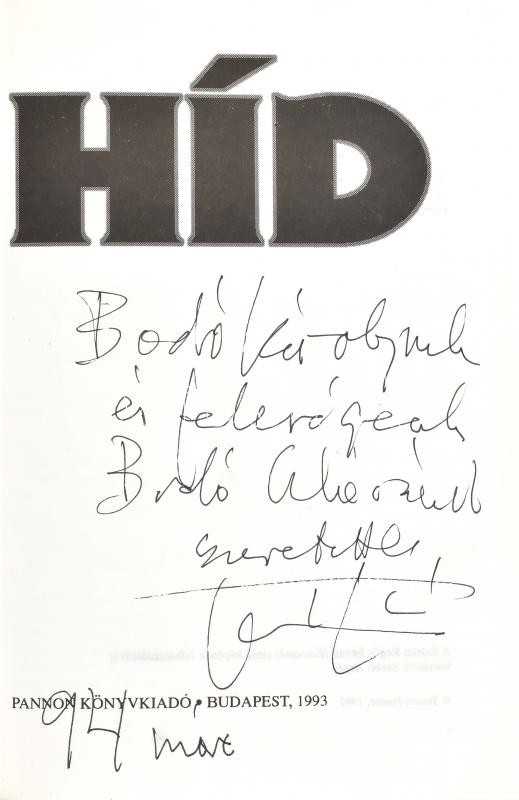 HÍD
Bodó Károlynak
és feleségének
Bodó
szeretettel
PANNON KÖNYVKIADÓ • BUDAPEST, 1993
94 márc